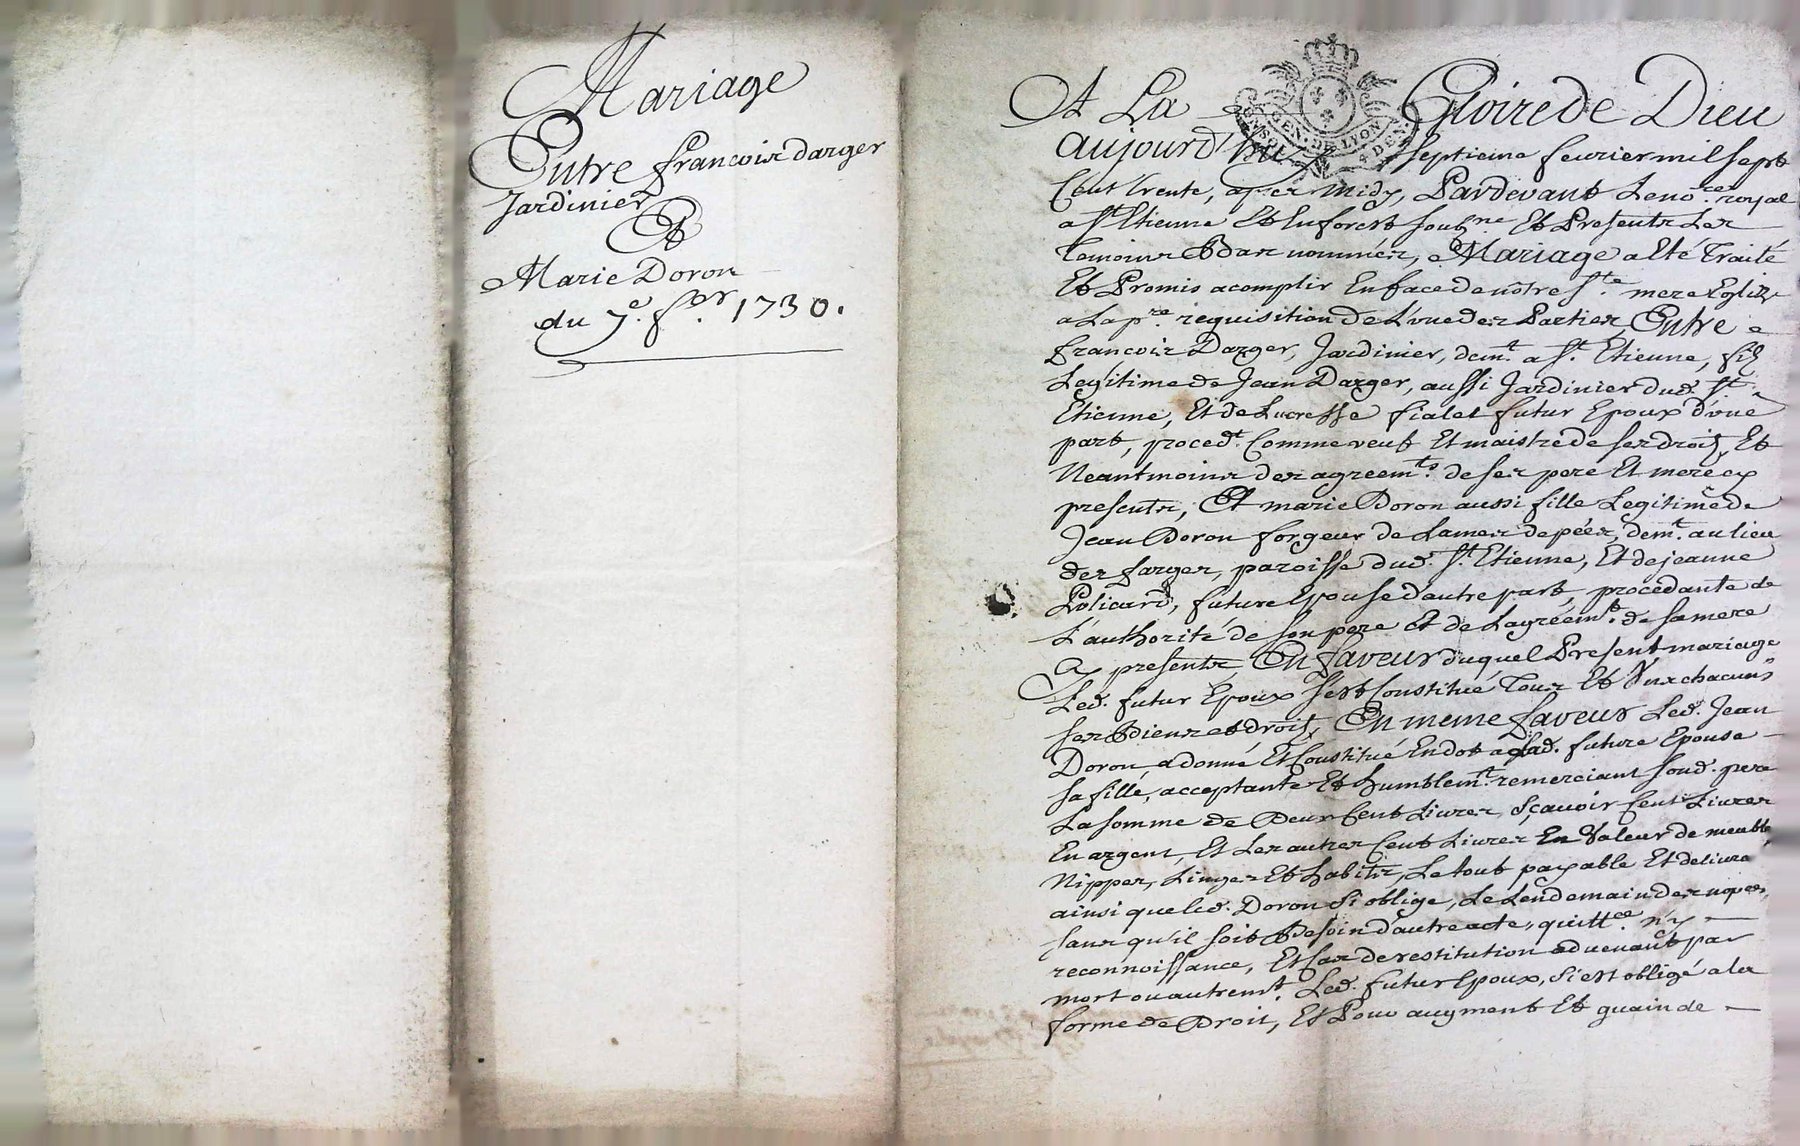 Mariage
Entre francois darger
Jardinier
Et
Marie Doron
du 7e. fer 1730.
A La Gloire de Dieu
GEN. DE LYON
4 DEN
aujourd'huy septieme fevrier mil sept
Cent trente, apres midy, Pardevant Le nore. royal
a St Etienne Et en forest soubne. Et Presents Les
temoins Bas nommés, Mariage a Eté Traité
Et Promis acomplir En face de nôtre Ste mere Eglize
a La pre. requisition de L'une des Parties, Entre
francois Darger, Jardinier, demt. a St. Etienne, fils
Legitime de Jean Darger, aussi Jardinier dud. St.
Etienne, Et de Lucresse fialet futur Epoux d'une
part, procedt. Comme veuf Et maistre de ses droits, Et
Neantmoins des agreemts. de ses pere Et mere cy
presents, Et marie Doron aussi fille Legitime de
Jean Doron forgeur de Lames depées, demt. au lieu
des farges, paroisse dud. St. Etienne, Et de jeanne
Policard, future Epouse d'autre part, procedante de
L'authorité de son pere Et de L'agréemt. de sa mere
Cy presents, En faveur duquel Present mariage
Led. futur Epoux sest Constitué Tous Et Uns chacuns
ses Biens et droits, En meme faveur Led. Jean
Doron, a donné Et Constitué En dot a lad. future Epouse
sa fille, acceptante Et humblemt. remerciant soud. pere
La somme de Deux Cent Livres, Sçavoir Cent Livres
En argent, Et Les autres Cent Livres En Valeur de meubles
Nippes, Linges Et habits, Le tout payable Et delivré
ainsi que led. Doron si oblige, Le Lendemain des nopces,
sans qu'il soit Besoin d'autre acte, quittce. n'y
reconnoissance, Et Cas de restitution advenant par
mort ou autremt. Led. futur Epoux, s'i est obligé a la
forme de Droit, Et Pour augment Et guain de